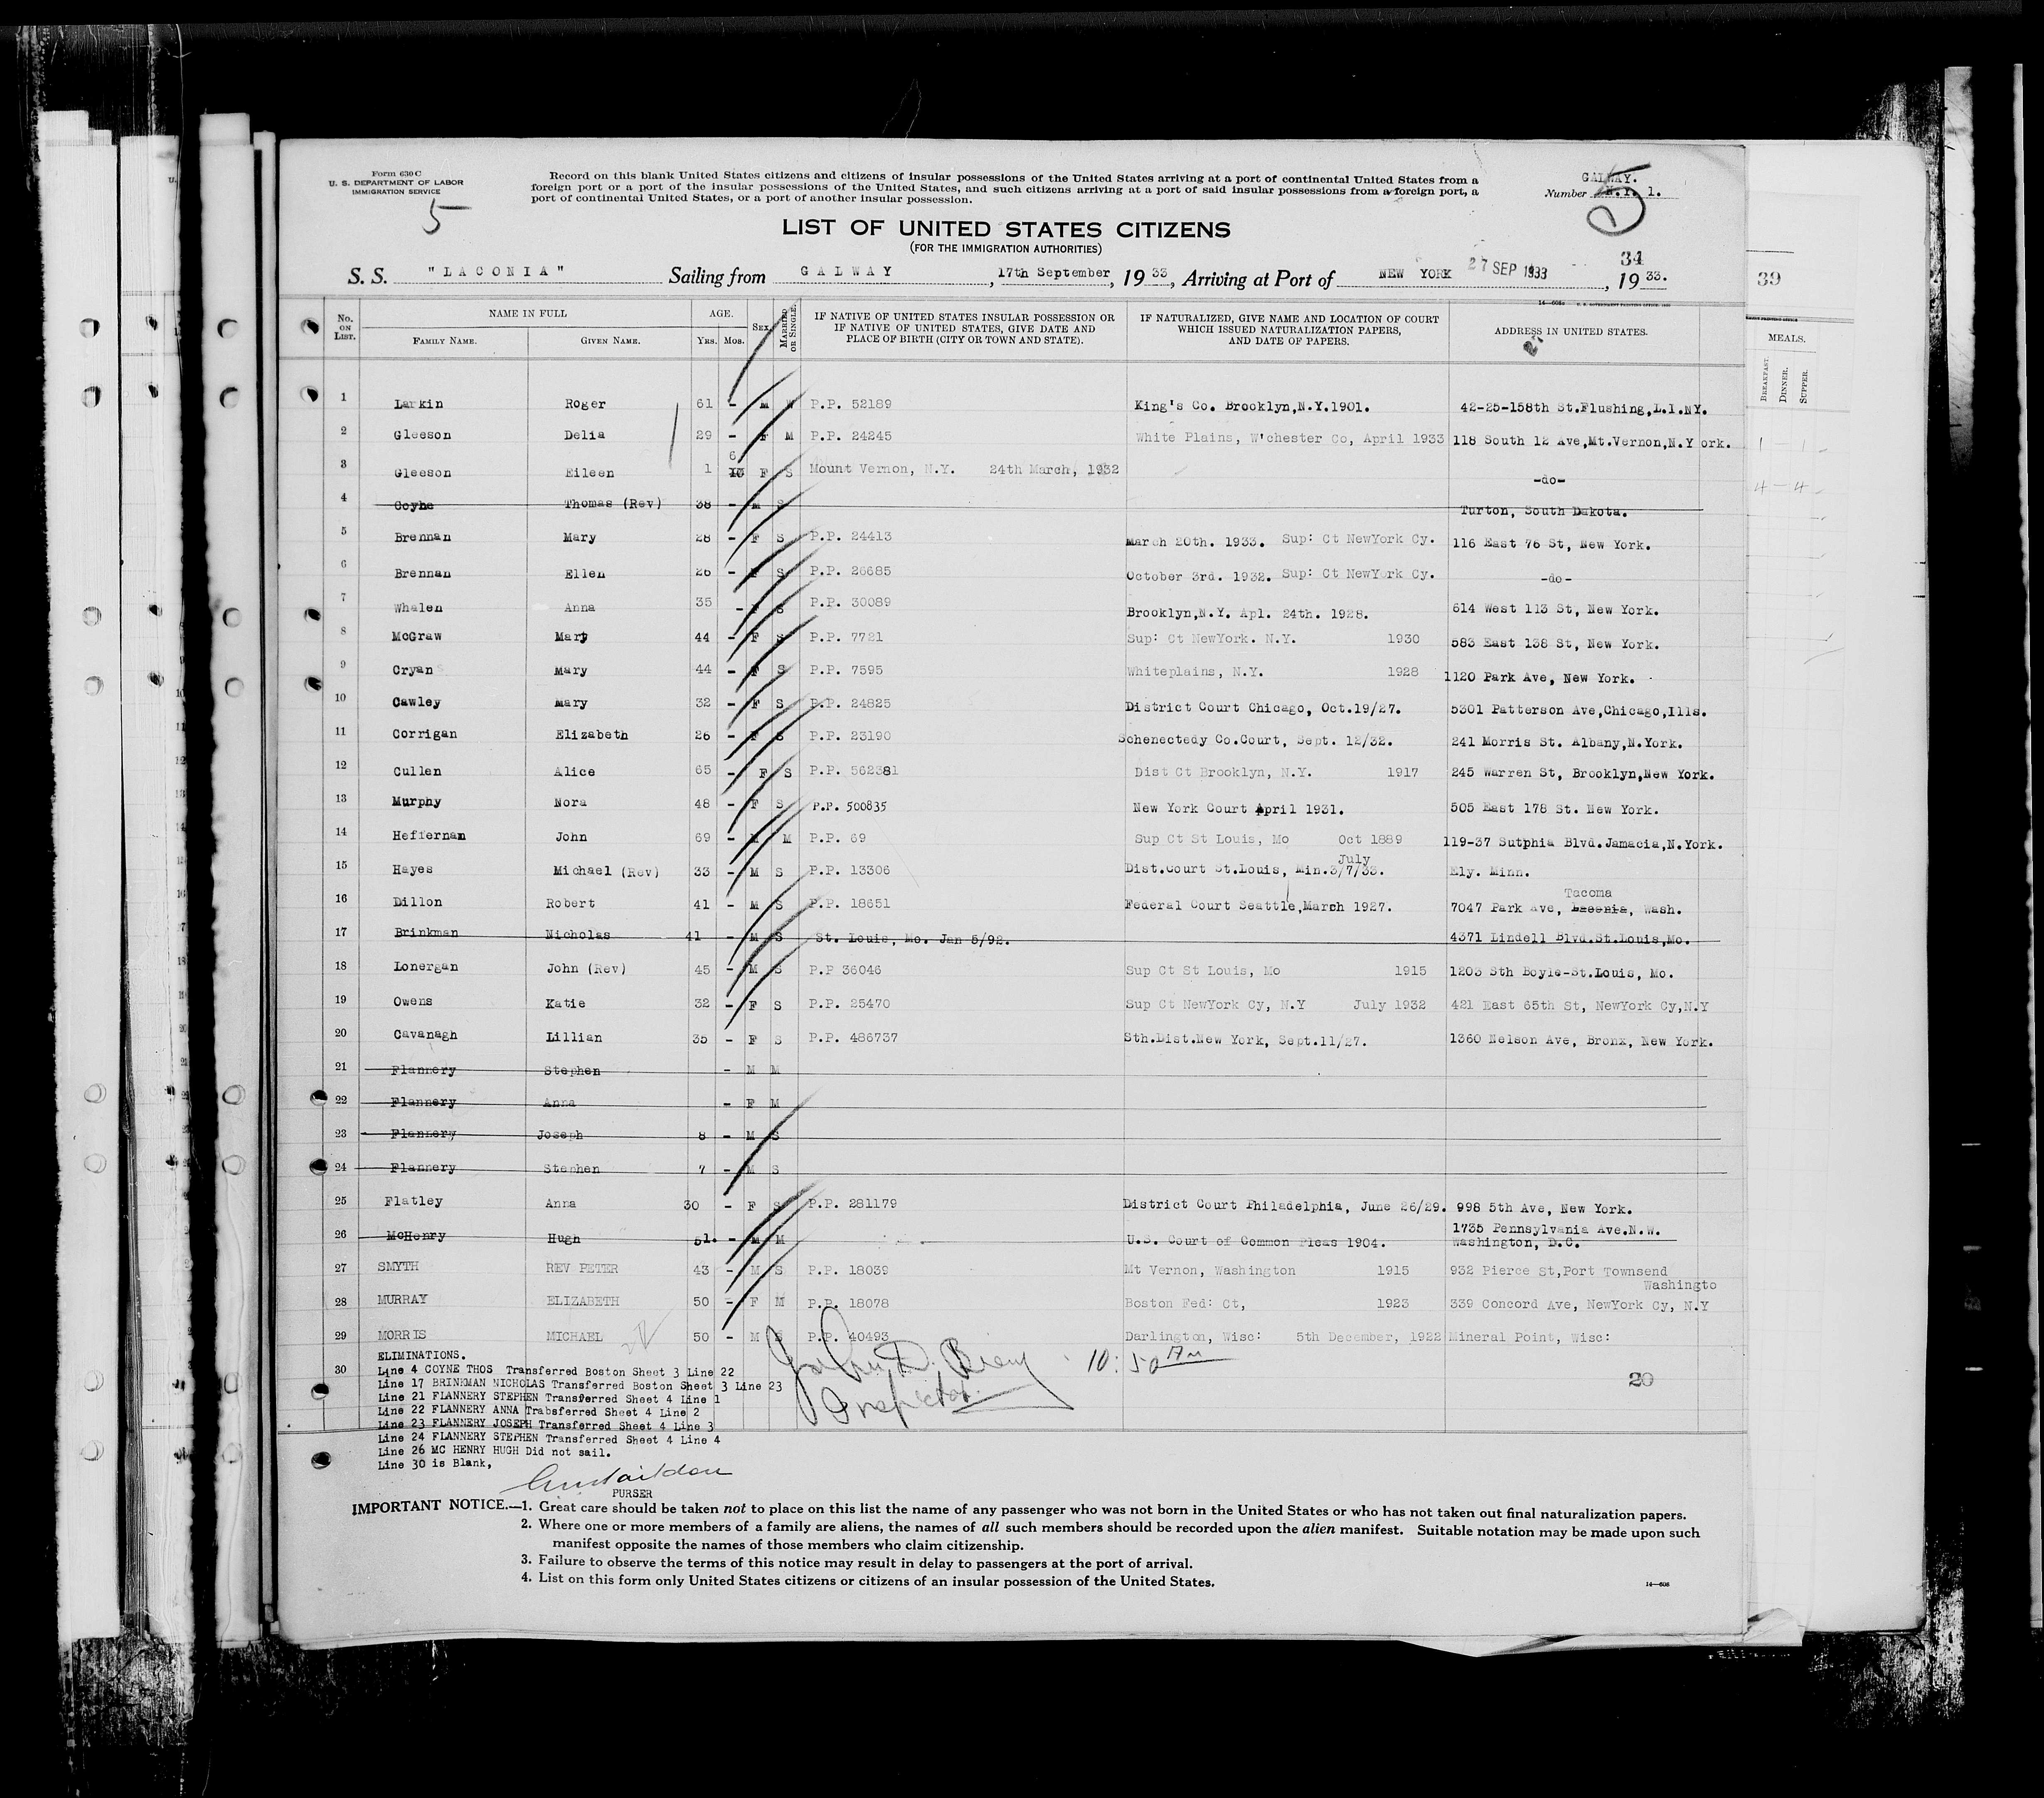 Form 630 C
U. S. DEPARTMENT OF LABOR
IMMIGRATION SERVICE
5
Record on this blank United States citizens and citizens of insular possessions of the United States arriving at a port of continental United States from a
foreign port or a port of the insular possessions of the United States, and such citizens arriving at a port of said insular possessions from a foreign port, a
port of continental United States, or a port of another insular possession.
GALWAY.
Number N.Y. 1.
LIST OF UNITED STATES CITIZENS
(FOR THE IMMIGRATION AUTHORITIES)
34
S. S. "LACONIA" Sailing from GALWAY, 17th September, 1933, Arriving at Port of NEW YORK 27 SEP 1933, 1933.
39
No. ON LIST. NAME IN FULL FAMILY NAME. GIVEN NAME. AGE. YRS. MOS. SEX MARRIED OR SINGLE IF NATIVE OF UNITED STATES INSULAR POSSESSION OR IF NATIVE OF UNITED STATES, GIVE DATE AND PLACE OF BIRTH (CITY OR TOWN AND STATE). IF NATURALIZED, GIVE NAME AND LOCATION OF COURT WHICH ISSUED NATURALIZATION PAPERS, AND DATE OF PAPERS. ADDRESS IN UNITED STATES.
MEALS.
BREAKFAST. DINNER. SUPPER.
1 Larkin Roger 61 - M W P.P. 52189 King's Co. Brooklyn,N.Y.1901. 42-25-158th St.Flushing,L.I.NY.
2 Gleeson Delia 29 - F M P.P. 24245 White Plains, W'chester Co, April 1933 118 South 12 Ave,Mt.Vernon,N.Y ork.
3 Gleeson Eileen 1 6 F S Mount Vernon, N.Y. 24th March, 1932 -do-
4 Coyne Thomas (Rev) 38 - M S Turton, South Dakota.
5 Brennan Mary 28 - F S P.P. 24413 March 20th. 1933. Sup: Ct NewYork Cy. 116 East 76 St, New York.
6 Brennan Ellen 26 - F S P.P. 26685 October 3rd. 1932. Sup: Ct NewYork Cy. -do-
7 Whalen Anna 35 - F S P.P. 30089 Brooklyn,N.Y. Apl. 24th. 1928. 614 West 113 St, New York.
8 McGraw Mary 44 - F S P.P. 7721 Sup: Ct NewYork. N.Y. 1930 583 East 138 St, New York.
9 Cryan Mary 44 - F S P.P. 7595 Whiteplains, N.Y. 1928 1120 Park Ave, New York.
10 Cawley Mary 32 - F S P.P. 24825 District Court Chicago, Oct.19/27. 5301 Patterson Ave,Chicago,Ills.
11 Corrigan Elizabeth 26 - F S P.P. 23190 Schenectedy Co.Court, Sept. 12/32. 241 Morris St. Albany,N.York.
12 Cullen Alice 65 - F S P.P. 562381 Dist Ct Brooklyn, N.Y. 1917 245 Warren St, Brooklyn,New York.
13 Murphy Nora 48 - F S P.P. 500835 New York Court April 1931. 505 East 178 St. New York.
14 Heffernan John 69 - M M P.P. 69 Sup Ct St Louis, Mo Oct 1889 119-37 Sutphia Blvd.Jamacia,N.York.
July
15 Hayes Michael (Rev) 33 - M S P.P. 13306 Dist.Court St.Louis, Min.3/7/33. Ely. Minn.
Tacoma
16 Dillon Robert 41 - M S P.P. 18651 Federal Court Seattle,March 1927. 7047 Park Ave, Laconia, Wash.
17 Brinkman Nicholas 41 - M S St. Louis, Mo. Jan 5/92. 4371 Lindell Blvd.St.Louis,Mo.
18 Lonergan John (Rev) 45 - M S P.P 36046 Sup Ct St Louis, Mo 1915 1203 Sth Boyle-St.Louis, Mo.
19 Owens Katie 32 - F S P.P. 25470 Sup Ct NewYork Cy, N.Y July 1932 421 East 65th St, NewYork Cy,N.Y
20 Cavanagh Lillian 35 - F S P.P. 486737 Sth.Dist.New York, Sept.11/27. 1360 Nelson Ave, Bronx, New York.
21 Flannery Stephen - M M
22 Flannery Anna - F M
23 Flannery Joseph 8 - M S
24 Flannery Stephen 7 - M S
25 Flatley Anna 30 - F S P.P. 281179 District Court Philadelphia, June 26/29. 998 5th Ave, New York.
26 McHenry Hugh 51. - M M U.S. Court of Common Pleas 1904. 1735 Pennsylvania Ave.N.W. Washington, D.C.
27 SMYTH REV PETER 43 - M S P.P. 18039 Mt Vernon, Washington 1915 932 Pierce St,Port Townsend Washingto
28 MURRAY ELIZABETH 50 - F M P.P. 18078 Boston Fed: Ct, 1923 339 Concord Ave, NewYork Cy, N.Y
29 MORRIS MICHAEL 50 - M S P.P. 40493 Darlington, Wisc: 5th December, 1922 Mineral Point, Wisc:
30
ELIMINATIONS.
Line 4 COYNE THOS Transferred Boston Sheet 3 Line 22
Line 17 BRINKMAN NICHOLAS Transferred Boston Sheet 3 Line 23
Line 21 FLANNERY STEPHEN Transferred Sheet 4 Line 1
Line 22 FLANNERY ANNA Trabsferred Sheet 4 Line 2
Line 23 FLANNERY JOSEPH Transferred Sheet 4 Line 3
Line 24 FLANNERY STEPHEN Transferred Sheet 4 Line 4
Line 26 MC HENRY HUGH Did not sail.
Line 30 is Blank,
10:50 AM
Inspector.
20
PURSER
IMPORTANT NOTICE.—1. Great care should be taken not to place on this list the name of any passenger who was not born in the United States or who has not taken out final naturalization papers.
2. Where one or more members of a family are aliens, the names of all such members should be recorded upon the alien manifest. Suitable notation may be made upon such
manifest opposite the names of those members who claim citizenship.
3. Failure to observe the terms of this notice may result in delay to passengers at the port of arrival.
4. List on this form only United States citizens or citizens of an insular possession of the United States.
14—606